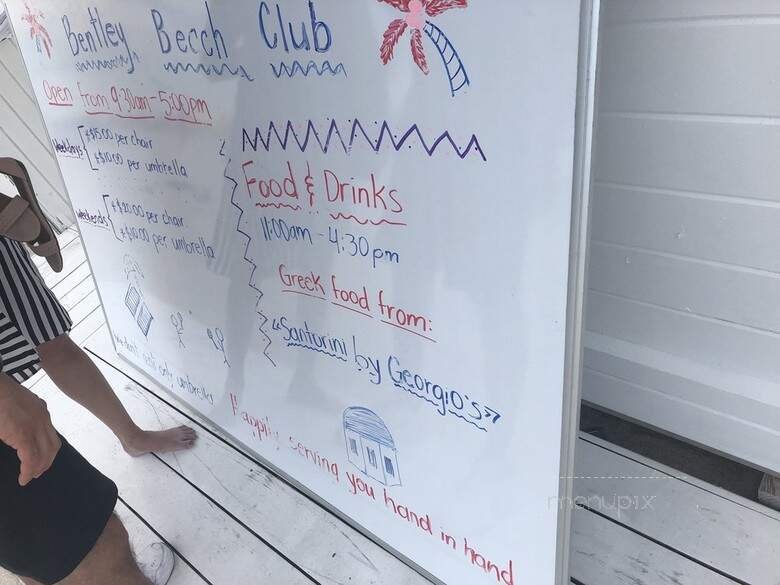 Bentley Beach Club
Open from 9:30am - 5:00pm
Weekdays
+$15.00 per chair
+$10.00 per umbrella
Weekends
+$20.00 per chair
+$10.00 per umbrella
only umbrellas
Food & Drinks
11:00am - 4:30pm
Greek food from:
"Santorini by Georgio's"
Happily serving you hand in hand
menupix